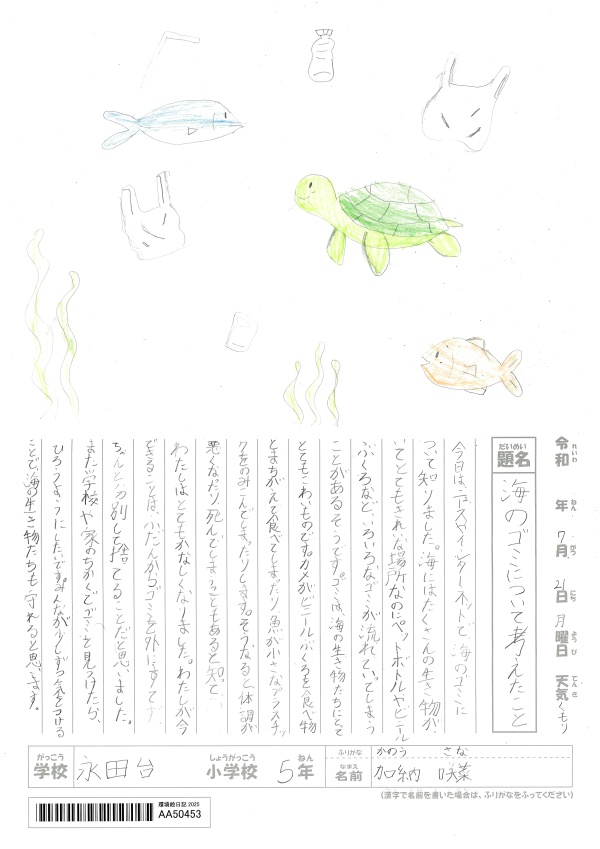 令和 れいわ 年 ねん 7月 がつ 21日 にち 月曜日 ようび 天気 てんき くもり
題名 だいめい 海のゴミについて考えたこと
今日は、ニュースやインターネットで、海のゴミに
ついて知りました。海にはたくさんの生き物が
いてとてもきれいな場所なのにペットボトルやビニール
ぶくろなど、いろいろなゴミが流れていってしまう
ことがあるそうです。ゴミは、海の生き物たちにとって
とてもこわいものです。カメがビニールぶくろを食べ物
とまちがえて食べてしまったり魚が小さなプラスチッ
クをのみこんでしまったりします。そうなると体調が
悪くなったり死んでしまうこともあると知って
わたしはとてもかなしくなりました。わたしが今
できることは、ふだんからゴミを外にすてず、
ちゃんと分別して捨てることだと思いました。
また学校や家のちかくでゴミを見つけたら、
ひろうようにしたいです。みんなが少しずつ気をつける
ことで、海の生き物たちも守れると思います。
学校 がっこう 永田台 小学校 しょうがっこう 5年 ねん
名前 なまえ ふりがな かのう さな
加納 咲菜
(漢字で名前を書いた場合は、ふりがなをふってください)
環境絵日記 2025
AA50453